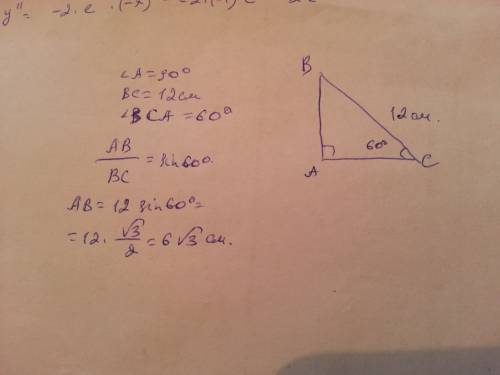 y'' = -2. e
∠A = 90°
BC = 12 см
∠BCA = 60°
AB
BC
= sin 60°.
AB = 12 sin 60° =
= 12 · √3/2 = 6 √3 см.
B
12 см.
60°
A
C